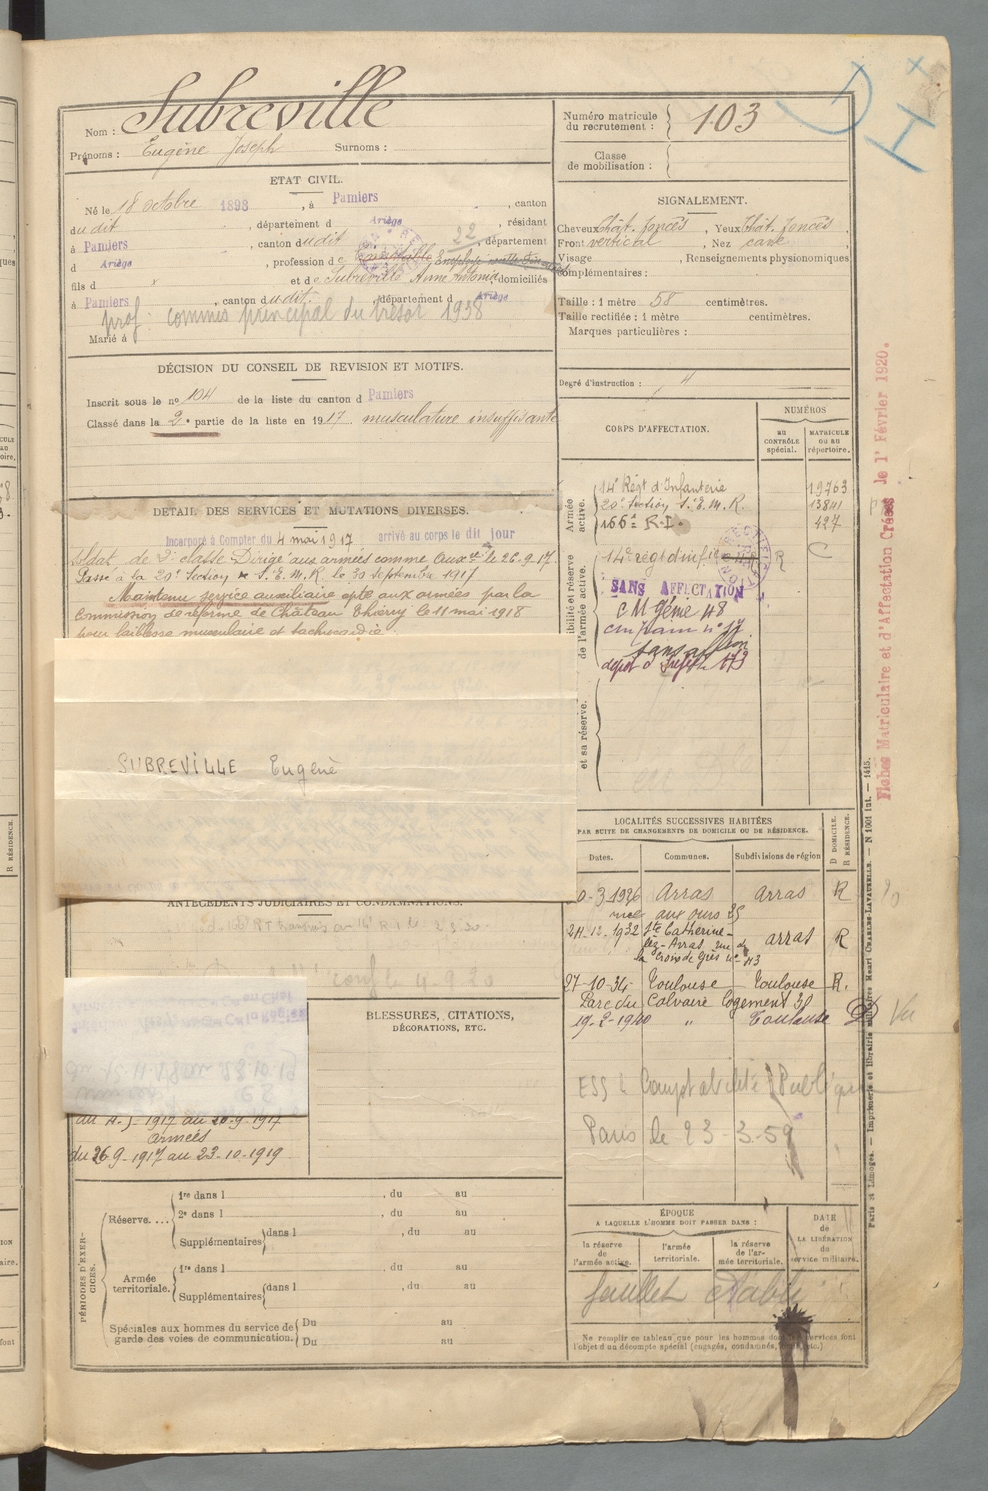 Nom : Subreville
Prénoms : Eugène Joseph Surnoms :
Numéro matricule du recrutement : 103
Classe de mobilisation :
ETAT CIVIL.
Né le 18 octobre 1898, à Pamiers, canton
dudit, département d Ariège, résidant
à Pamiers, canton dudit 22, département
d Ariège, profession de
fils d x et de Subreville Anne Antonia domiciliés
à Pamiers, canton dudit, département d Ariège
prof : commis principal du trésor 1938
Marié à
SIGNALEMENT.
Cheveux Chât. foncés, Yeux Chât. foncés
Front vertical, Nez cave
Visage, Renseignements physionomiques
complémentaires :
Taille : 1 mètre 58 centimètres.
Taille rectifiée : 1 mètre centimètres.
Marques particulières :
Degré d'instruction : 4
DÉCISION DU CONSEIL DE REVISION ET MOTIFS.
Inscrit sous le no 104 de la liste du canton d Pamiers
Classé dans la 2e partie de la liste en 1917 musculature insuffisante
CORPS D'AFFECTATION.
NUMÉROS
au CONTRÔLE spécial.
MATRICULE ou au répertoire.
Armée active.
14e Régt d'Infanterie 19763
20e Section S.E.M.R. 13841
166e R.I. 427
14e regt d'infie R C
SANS AFFECTATION
C M Génie 48
sans affon
et sa réserve.
DETAIL DES SERVICES ET MUTATIONS DIVERSES.
Incorporé à Compter du 4 mai 1917 arrivé au corps le dit jour
Soldat de 2e classe Dirigé aux armées comme Auxre le 26.9.17.
Passé à la 20e Section S.E.M.R. le 30 septembre 1917
Maintenu service auxiliaire apte aux armées par la
Commission de réforme de Château Thierry le 11 mai 1918
pour faiblesse musculaire et tachycardie.
SUBREVILLE Eugène
ANTÉCÉDENTS JUDICIAIRES ET CONDAMNATIONS.
BLESSURES, CITATIONS,
DÉCORATIONS, ETC.
armées
du 26-9-1917 au 23-10-1919
LOCALITÉS SUCCESSIVES HABITÉES
PAR SUITE DE CHANGEMENTS DE DOMICILE OU DE RÉSIDENCE.
Dates. Communes. Subdivisions de région D DOMICILE. R RÉSIDENCE.
0-3-1926 Arras Arras R
rue aux ours 25
24-12-1932 Ste Catherine-
lez-Arras rue de arras R
la Croix de grès no 43
27-10-34 Toulouse Toulouse R.
Parc du Calvaire Logement 30
19-2-1940 " Toulouse D Vu
ESS à Comptabilité Publique
Paris le 23-3-59
PÉRIODES D'EXERCICES.
Réserve....
1re dans l , du au
2e dans l , du au
Supplémentaires dans l , du au
Armée territoriale.
1re dans l , du au
Supplémentaires dans l , du au
Spéciales aux hommes du service de garde des voies de communication.
Du au
Du au
ÉPOQUE
A LAQUELLE L'HOMME DOIT PASSER DANS :
la réserve de l'armée active.
l'armée territoriale.
la réserve de l'armée territoriale.
DATE de LA LIBÉRATION du service militaire.
feuillet
Ne remplir ce tableau que pour les hommes dont les services font
l'objet d'un décompte spécial (engagés, condamnés, etc.)
Fiches Matriculaire et d'Affectation Créées le 1r Février 1920.
Paris et Limoges. — Imprimerie et librairie militaires Henri CHARLES-LAVAUZELLE. — N 1001 Int. — 1415.